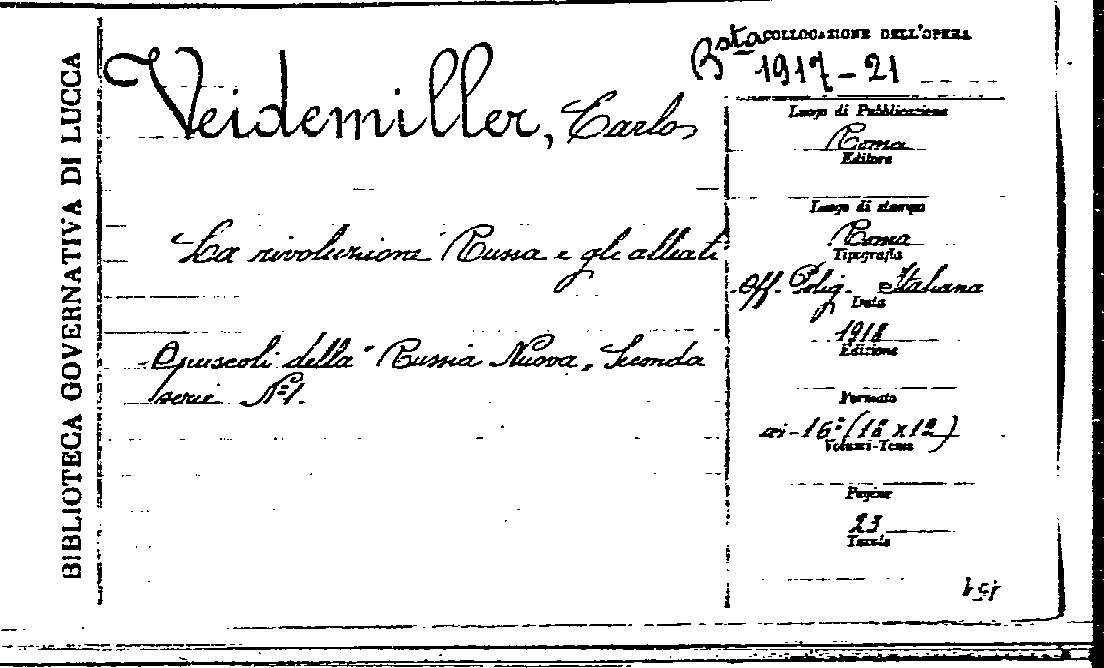 BIBLIOTECA GOVERNATIVA DI LUCCA
Veidemiller, Carlo
La rivoluzione Russa e gli alleati
Opuscoli della Russia Nuova, Seconda
serie Nº1.
Bsta COLLOCAZIONE DELL'OPERA
1917-21
Luogo di Pubblicazione
Roma
Editore
Luogo di stampa
Roma
Tipografia
Off. Polig. Italiana
Data
1918
Edizione
Formato
in-16º (18 x 12)
Volumi-Tomi
Pagine
23
Tavole